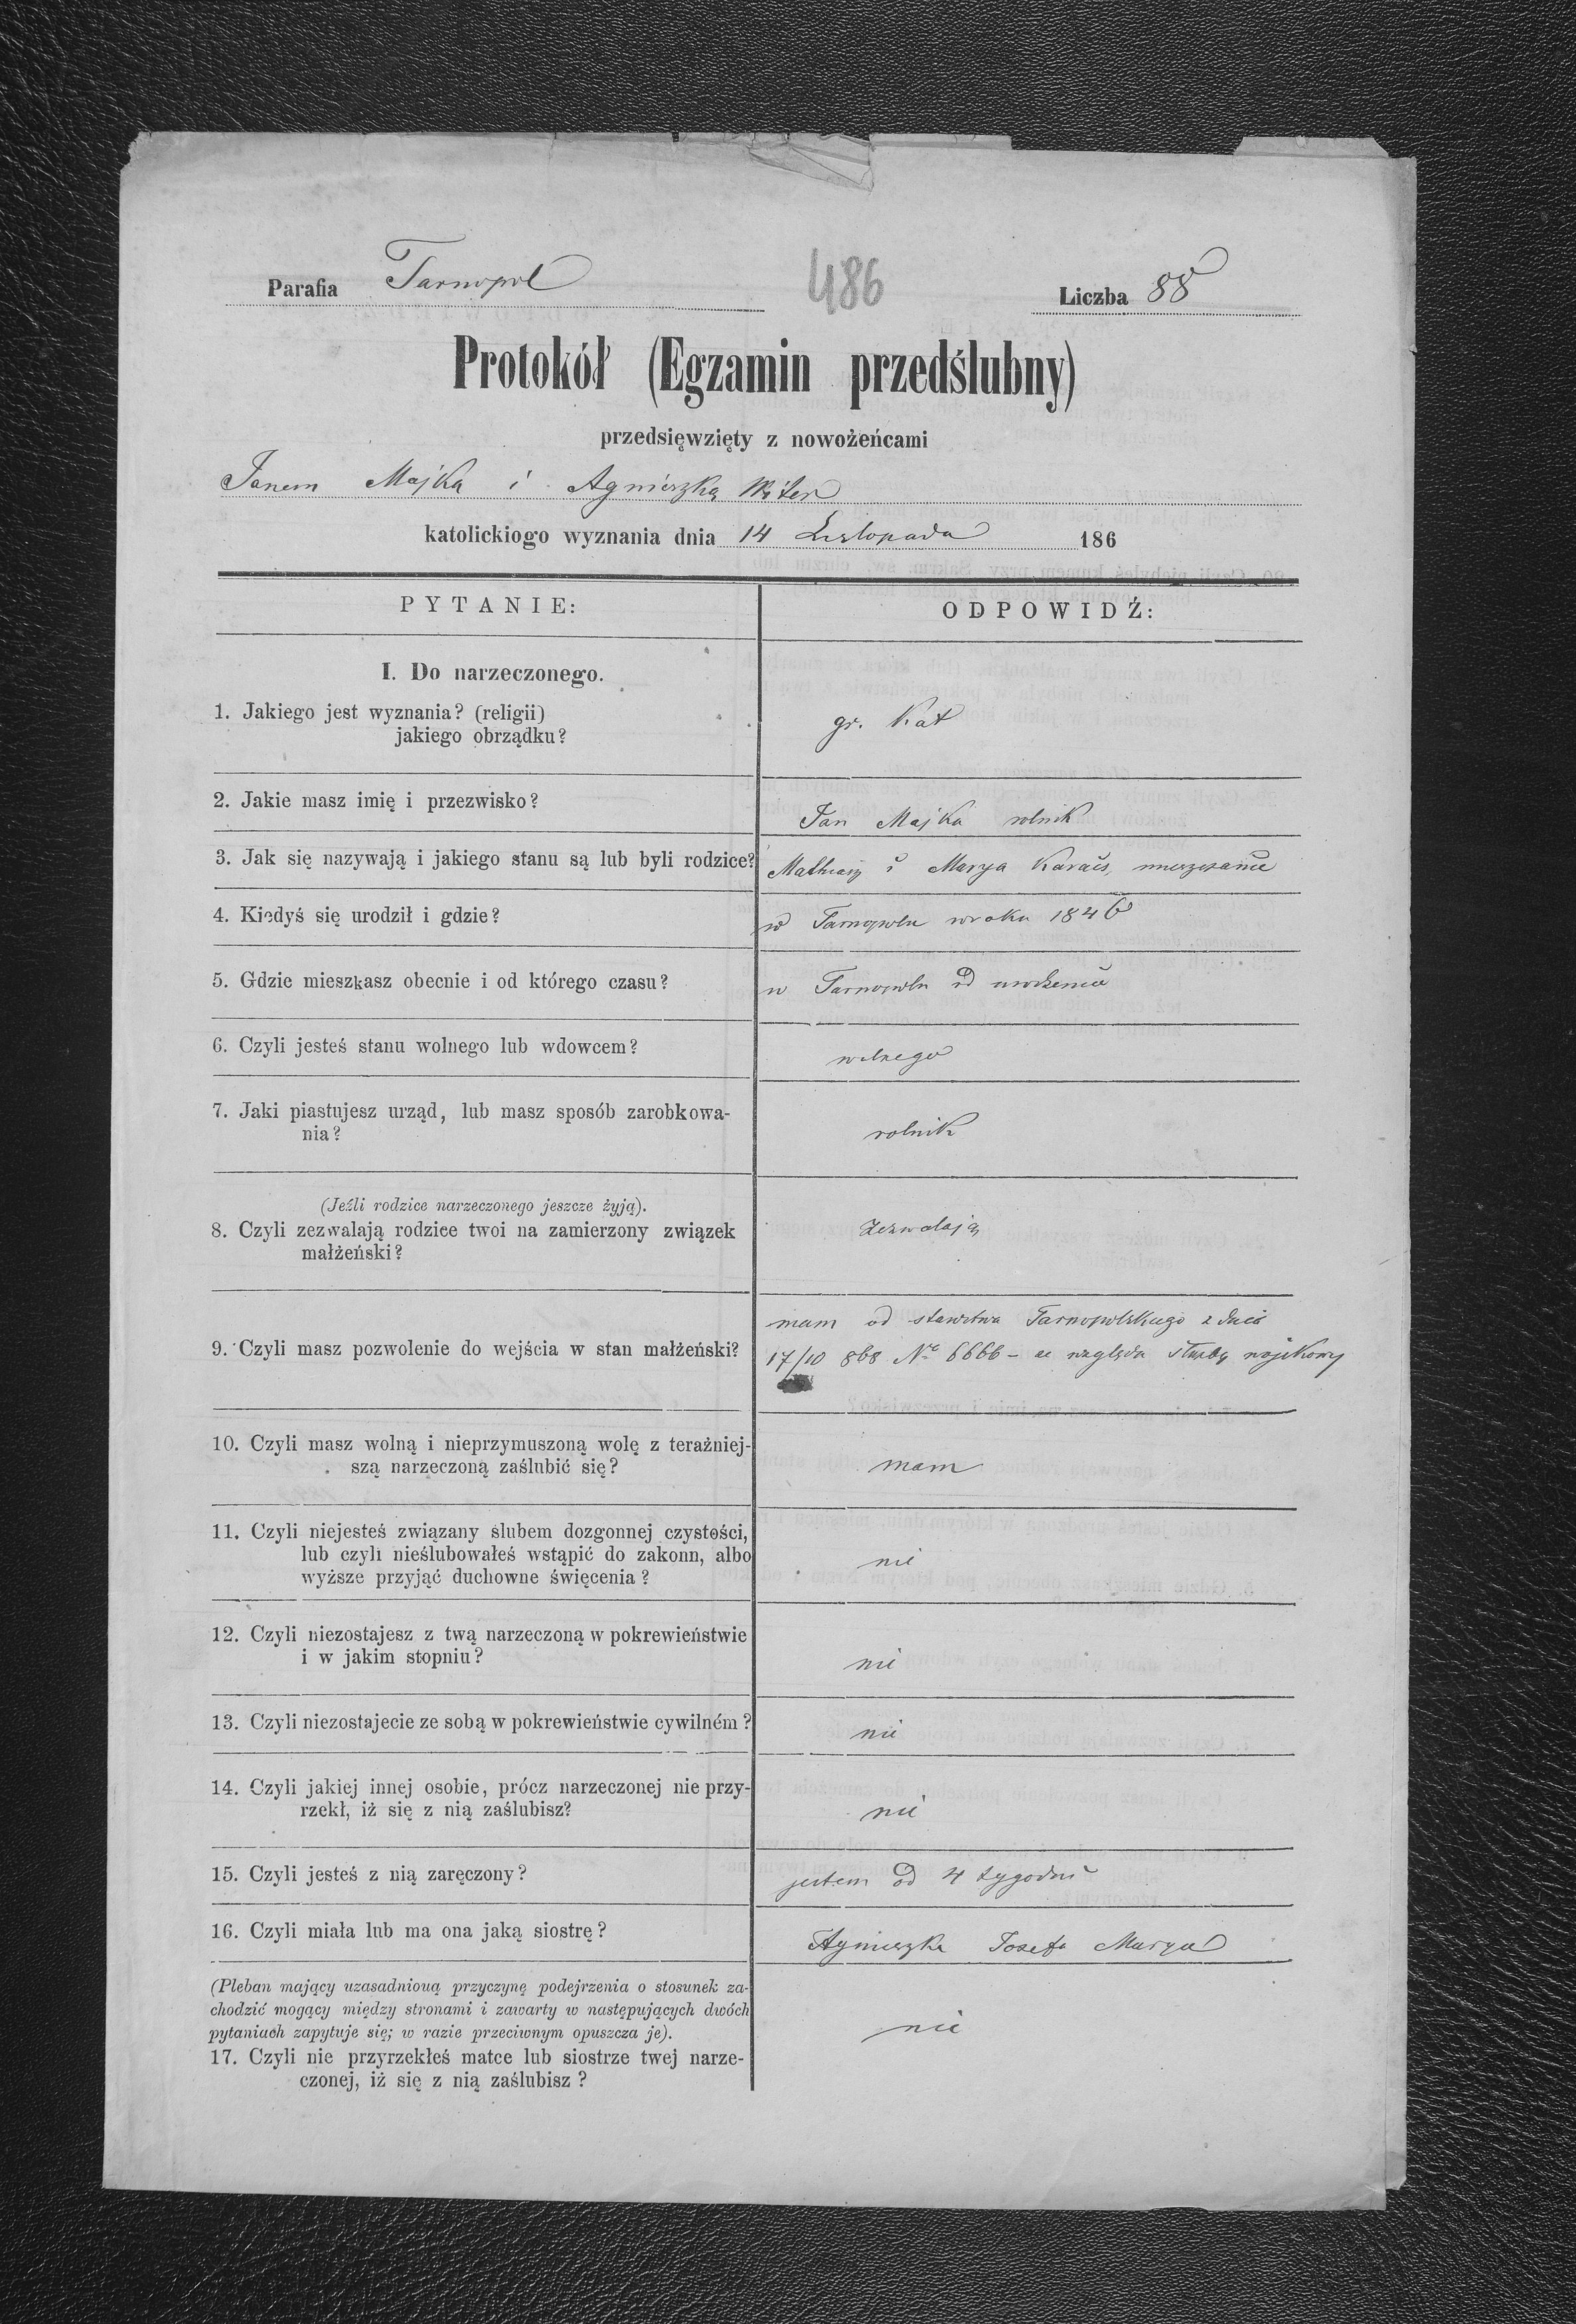 Parafia Tarnopol
486
Liczba 88
Protokół (Egzamin przedślubny)
przedsięwzięty z nowożeńcami
Janem Majka i Agnieszką
katolickiogo wyznania dnia 14 Listopada 186
PYTANIE:
ODPOWIDŹ:
I. Do narzeczonego.
1. Jakiego jest wyznania? (religii)
jakiego obrządku?
gr. Kat
2. Jakie masz imię i przezwisko?
Jan Majka rolnik
3. Jak się nazywają i jakiego stanu są lub byli rodzice?
i Marya mieszczanie
4. Kiedyś się urodził i gdzie?
w Tarnopolu w roku 1846
5. Gdzie mieszkasz obecnie i od którego czasu?
w Tarnopolu od urodzenia
6. Czyli jesteś stanu wolnego lub wdowcem?
wolnego
7. Jaki piastujesz urząd, lub masz sposób zarobkowa-
nia?
rolnik
(Jeźli rodzice narzeczonego jeszcze żyją).
8. Czyli zezwalają rodzice twoi na zamierzony związek
małżeński?
zezwalają
9. Czyli masz pozwolenie do wejścia w stan małżeński?
mam od starostwa Tarnopolskiego z dnia
17/10 868 No 6666 - ze względu służby wojskowej
10. Czyli masz wolną i nieprzymuszoną wolę z teraźniej-
szą narzeczoną zaślubić się?
mam
11. Czyli niejesteś związany ślubem dozgonnej czystości,
lub czyli nieślubowałeś wstąpić do zakonn, albo
wyższe przyjąć duchowne święcenia?
nie
12. Czyli niezostajesz z twą narzeczoną w pokrewieństwie
i w jakim stopniu?
nie
13. Czyli niezostajecie ze sobą w pokrewieństwie cywilném?
nie
14. Czyli jakiej innej osobie, prócz narzeczonej nie przy-
rzekł, iż się z nią zaślubisz?
nie
15. Czyli jesteś z nią zaręczony?
jestem od 4 tygodni
16. Czyli miała lub ma ona jaką siostrę?
Agnieszka Josefa Marya
(Pleban mający uzasadnioną przyczynę podejrzenia o stosunek za-
chodzić mogący między stronami i zawarty w następujących dwóch
pytaniach zapytuje się; w razie przeciwnym opuszcza je).
17. Czyli nie przyrzekłeś matce lub siostrze twej narze-
czonej, iż się z nią zaślubisz?
nie